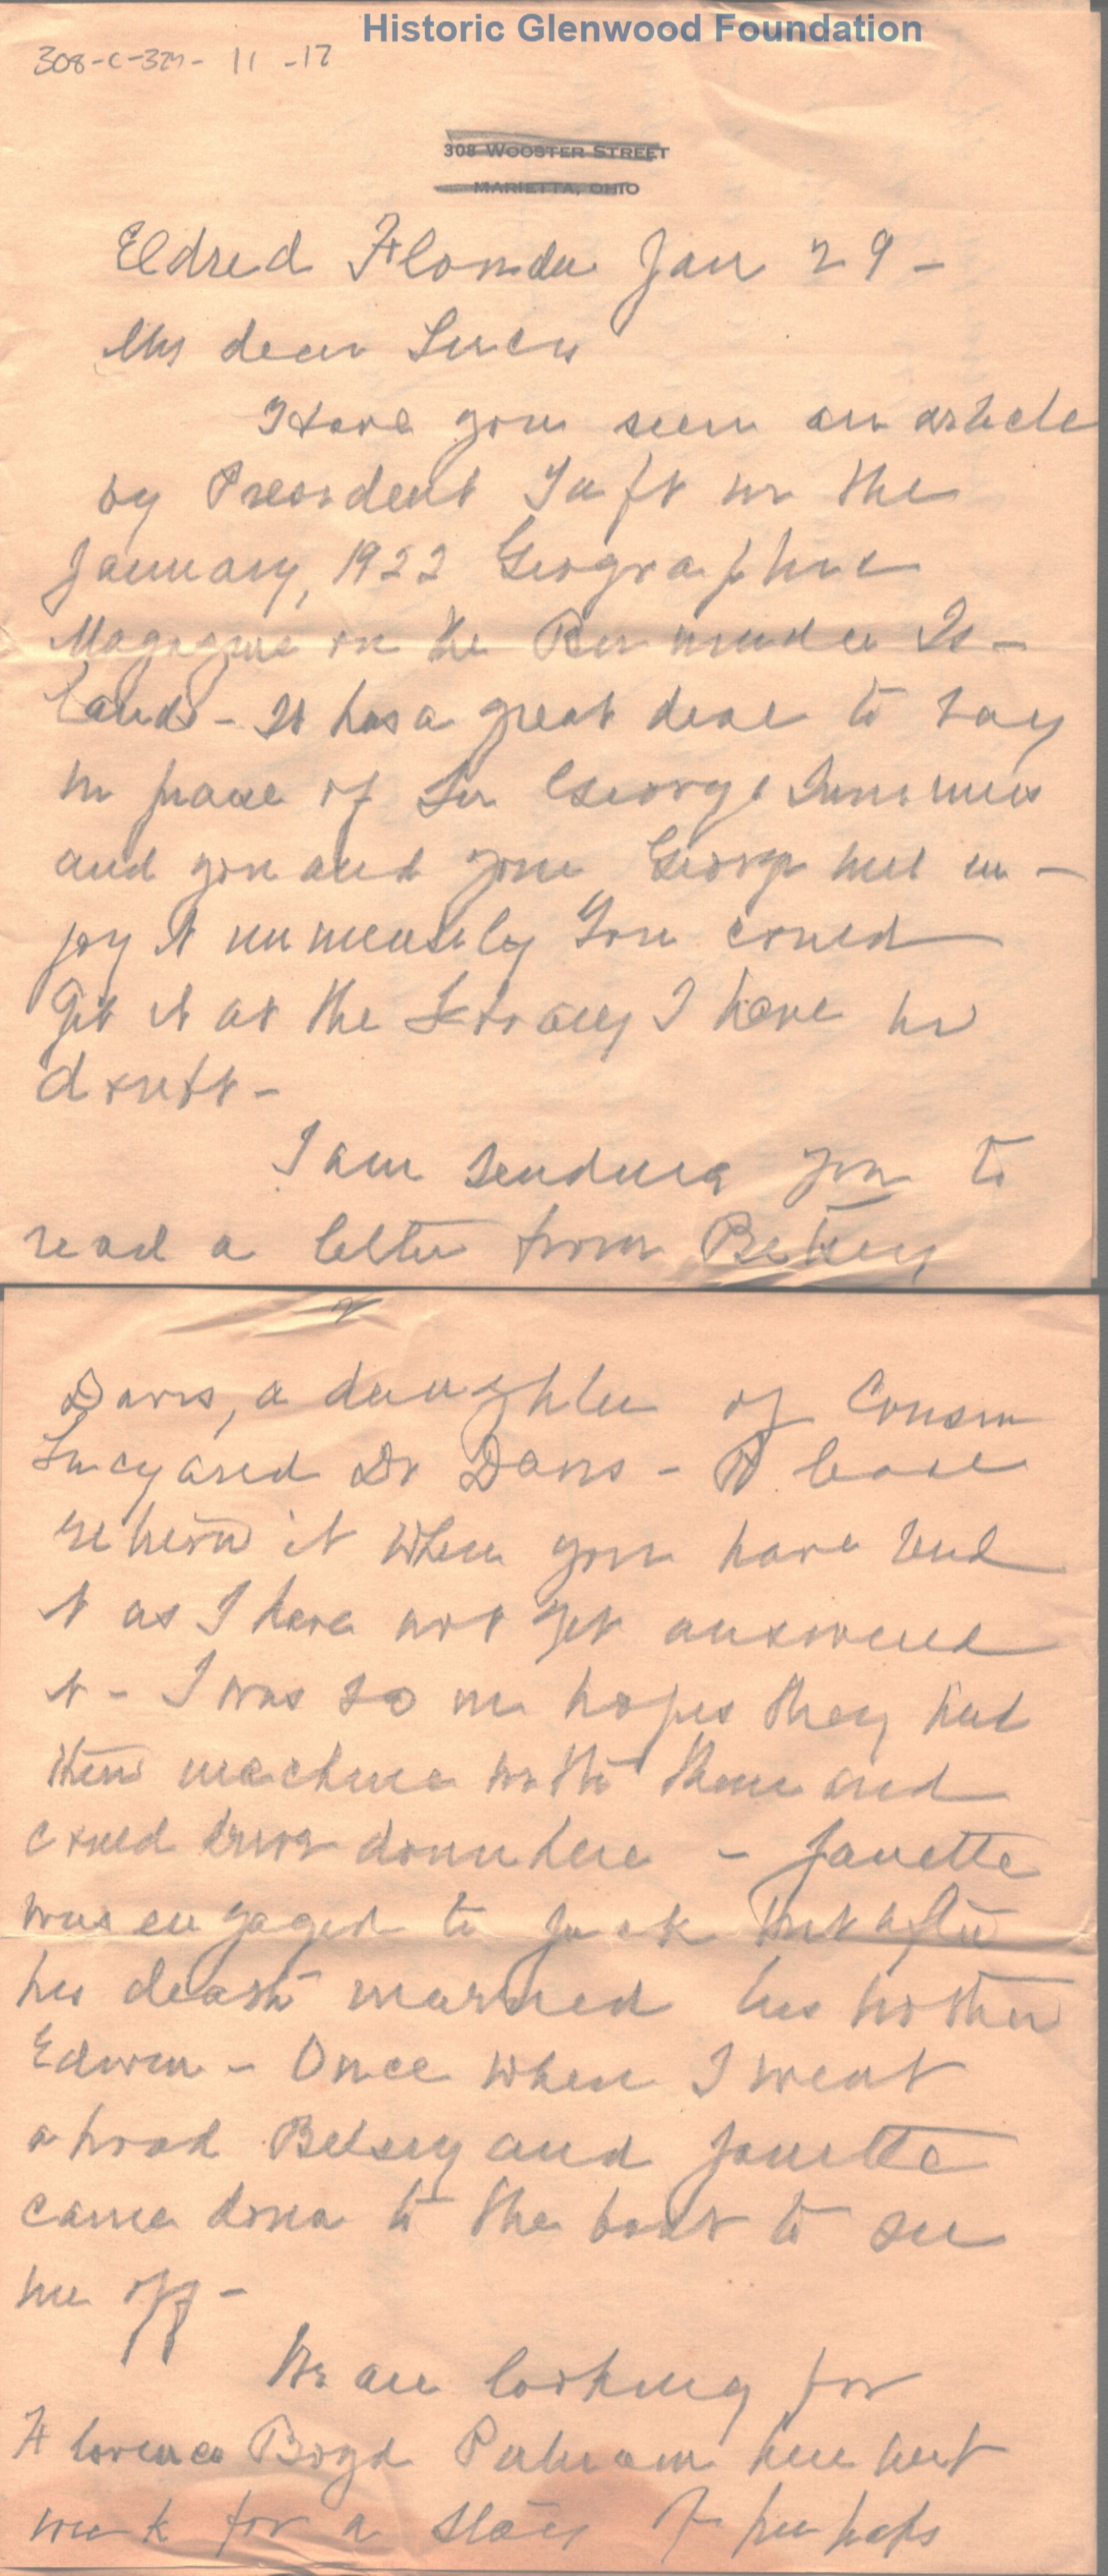 Historic Glenwood Foundation
308-C-329- 11 -12
308 WOOSTER STREET
MARIETTA, OHIO
Eldred Florida Jan 29 -
My dear Lucy
Have you seen an article
by President Taft in the
January, 1922 Geographic
Magazine on the Bermuda Is-
lands - It has a great deal to say
in praise of Sir George Summers
and you and your George will en-
joy it immensely You could
get it at the Library I have no
doubt -
I am sending you to
read a letter from Betsey
2
Davis, a daughter of Cousin
Lucy and Dr Davis - Please
return it when you have read
it as I have not yet answered
it - I was so in hopes they had
their machine with them and
could drive down here - Janette
was engaged to Jack but after
his death married his brother
Edwin - Once when I went
abroad Betsey and Janette
came down to the boat to see
me off -
We are looking for
Florence Boyd Putnam here next
week for a stay of perhaps